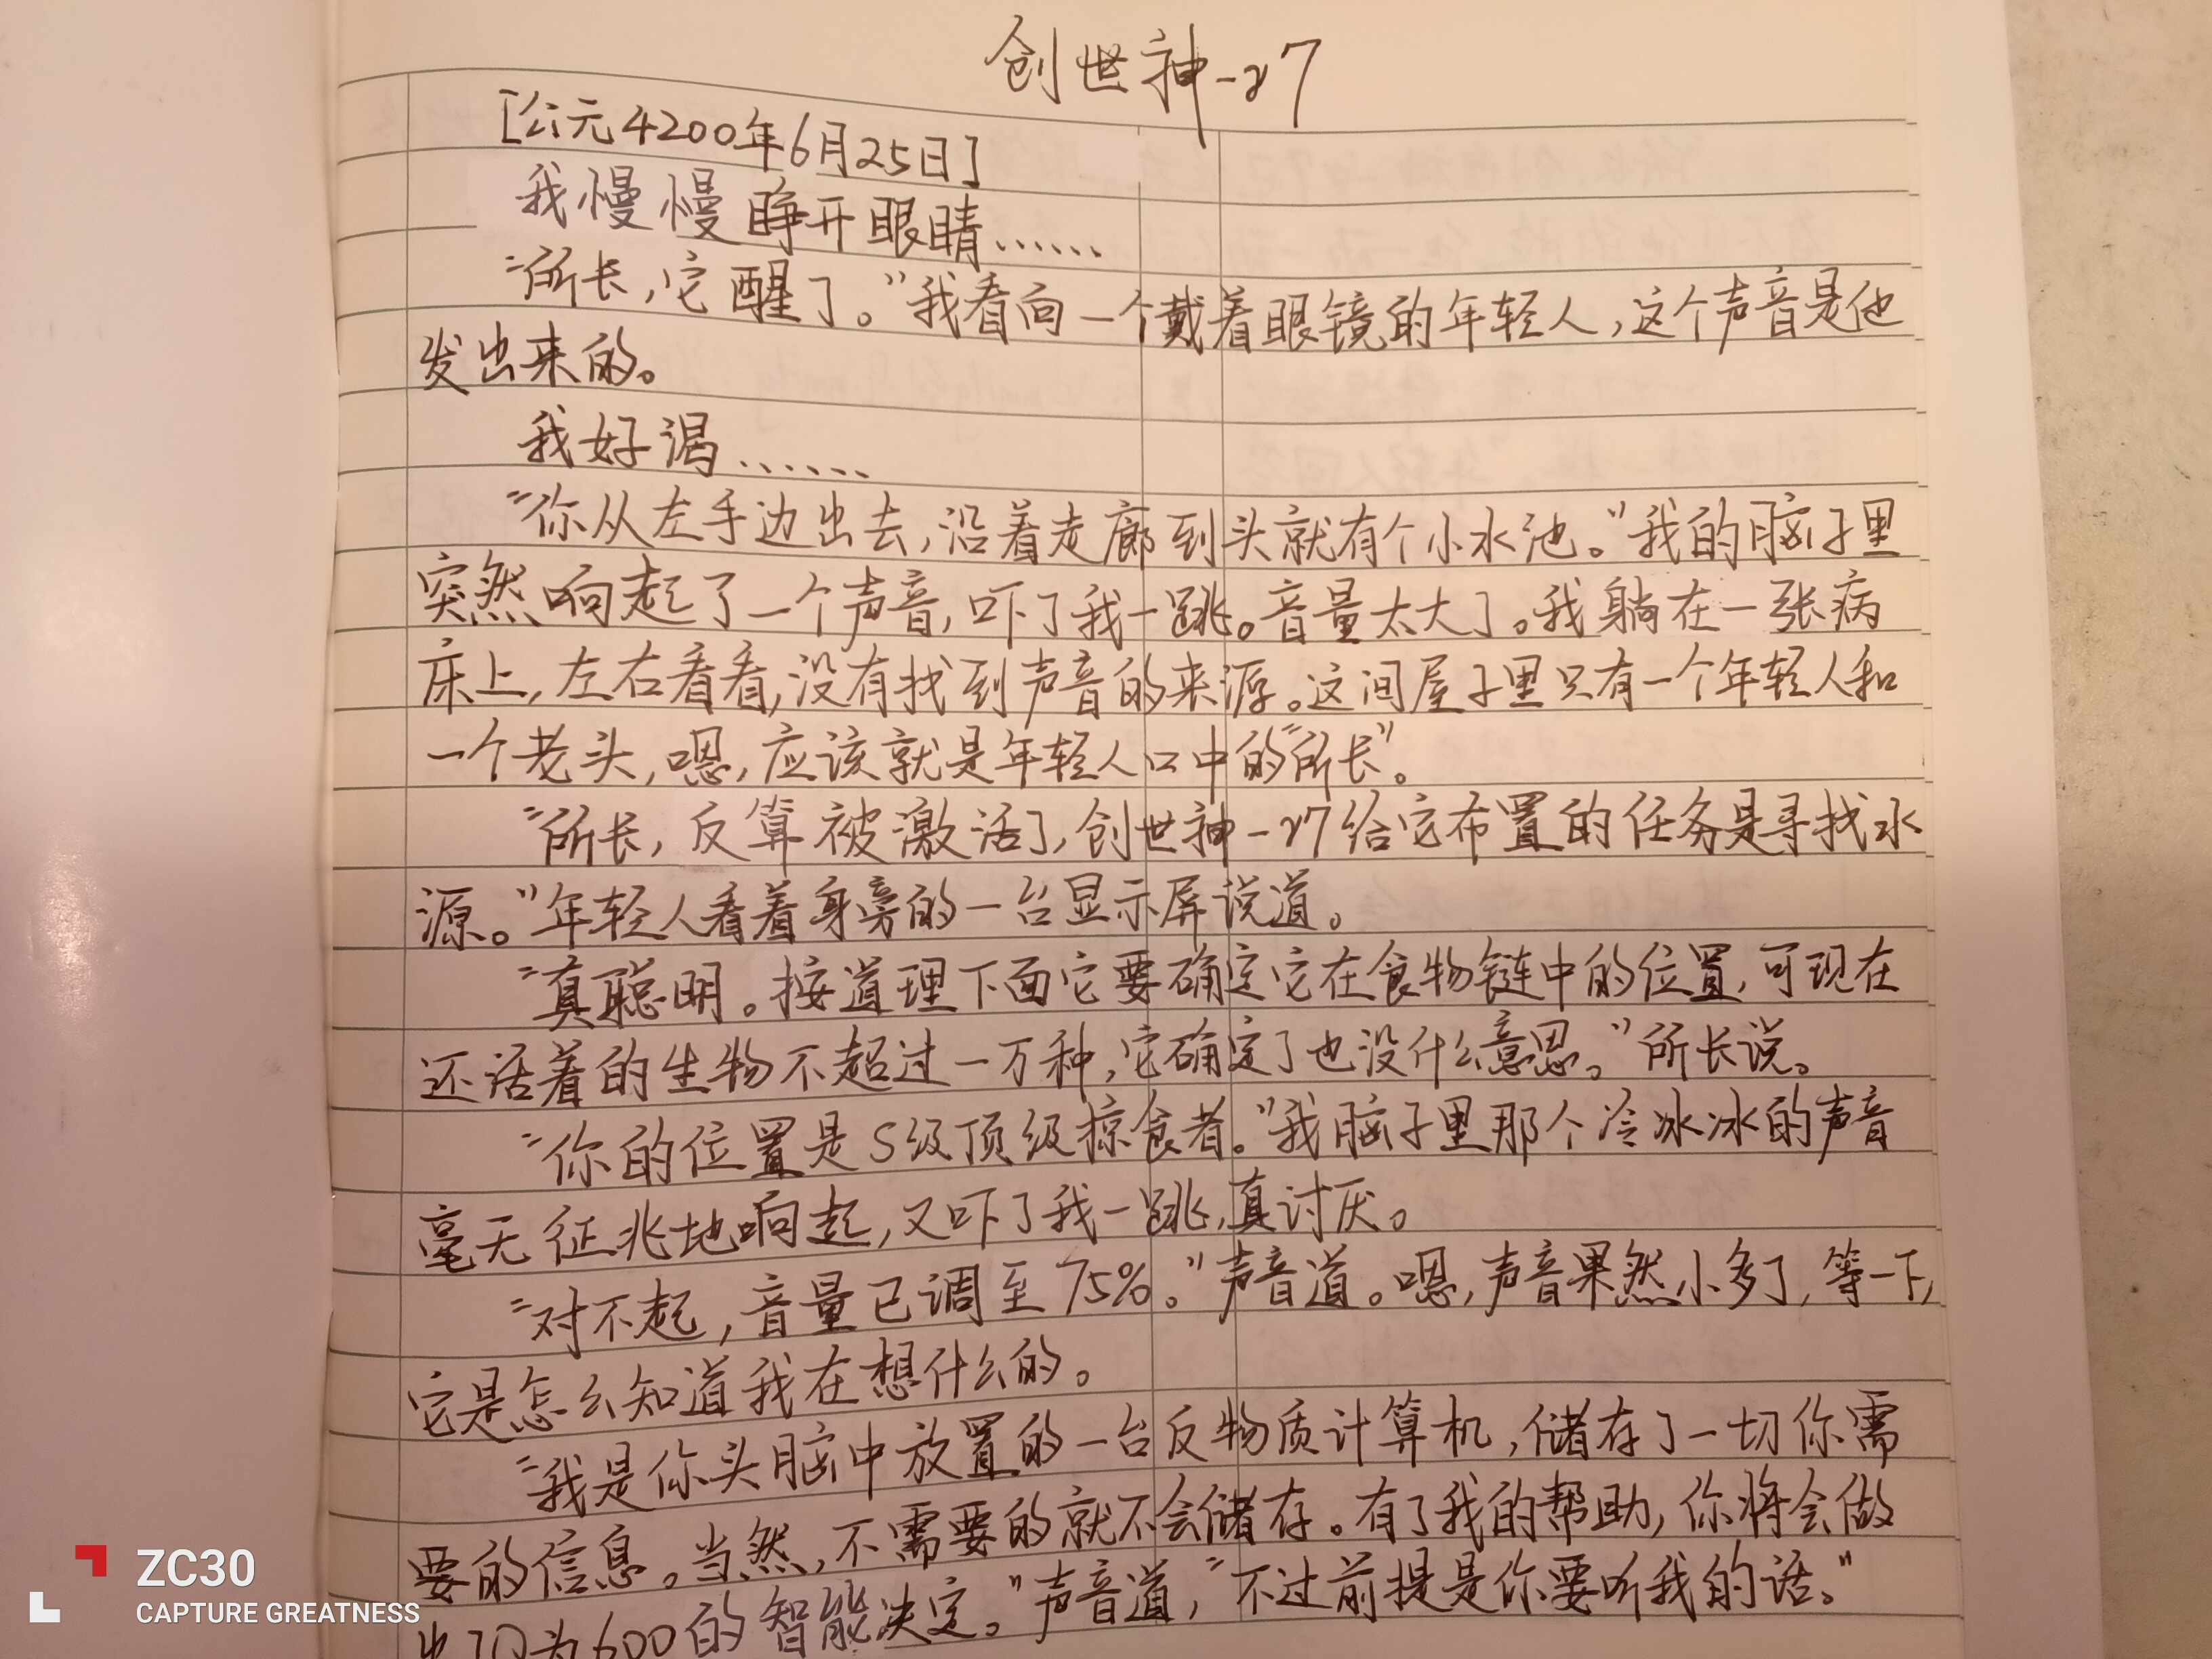 创世神-γ7
[公元4200年6月25日]
我慢慢睁开眼睛……
“所长,它醒了。”我看向一个戴着眼镜的年轻人,这个声音是他
发出来的。
我好渴……
“你从左手边出去,沿着走廊到头就有个小水池。”我的脑子里
突然响起了一个声音,吓了我一跳。音量太大了。我躺在一张病
床上,左右看看,没有找到声音的来源。这间屋子里只有一个年轻人和
一个老头,嗯,应该就是年轻人口中的“所长”。
“所长,反算被激活了,创世神-γ7给它布置的任务是寻找水
源。”年轻人看着身旁的一台显示屏说道。
“真聪明。按道理下面它要确定它在食物链中的位置,可现在
还活着的生物不超过一万种,它确定了也没什么意思。”所长说。
“你的位置是S级顶级掠食者。”我脑子里那个冷冰冰的声音
毫无征兆地响起,又吓了我一跳,真讨厌。
“对不起,音量已调至75%。”声音道。嗯,声音果然小多了,等一下,
它是怎么知道我在想什么的。
“我是你头脑中放置的一台反物质计算机,储存了一切你需
要的信息。当然,不需要的就不会储存。有了我的帮助,你将会做
出IQ为600的智能决定。”声音道,“不过前提是你要听我的话。”
ZC30
CAPTURE GREATNESS